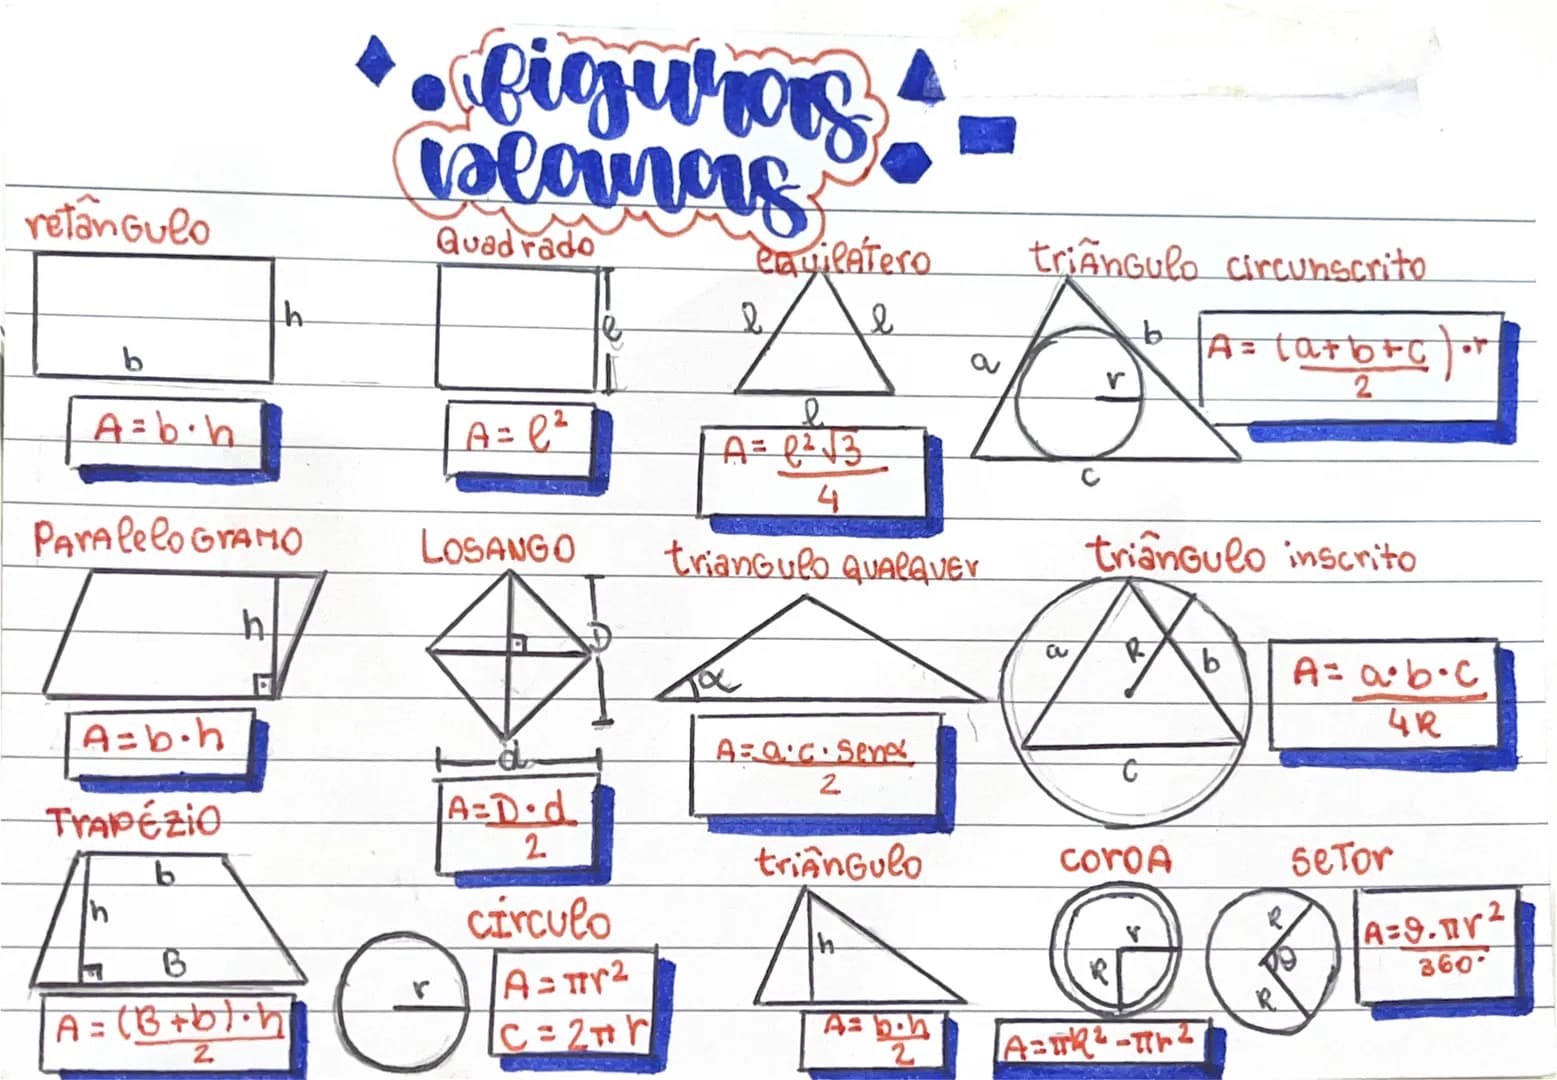 figuras
planas
retângulo
b
h
A = b · h
Quadrado
l
A = l²
equilátero
l
l
l
A = l²√3
4
triãngulo circunscrito
a
b
r
c
A = (a+b+c) · r
2
Paralelogramo
h
A = b · h
LOSANGO
D
d
A = D · d
2
triangulo qualquer
α
A = a · c · senα
2
triângulo inscrito
a
R
b
c
A = a · b · c
4R
Trapézio
b
h
B
A = (B + b) · h
2
círculo
r
A = πr²
C = 2πr
triângulo
h
A = b · h
2
coroa
r
R
A = πR² - πr²
setor
R
θ
R
A = θ · πr²
360°